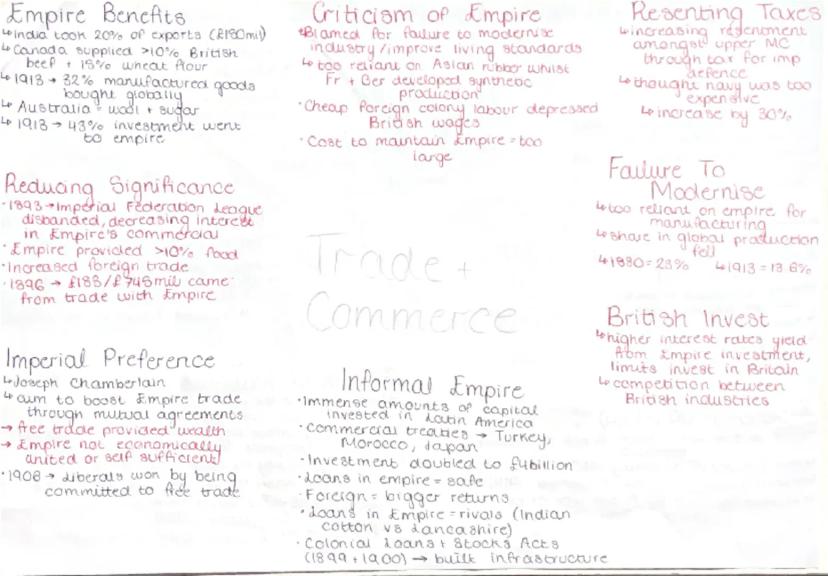 Empire Benefits
↳India took 20% of exports (£150mil)
↳Canada supplied >10% British
beef + 15% wheat flour
↳1913→32% manufactured goods
bought globally
↳Australia = wool + sugar
↳1913→43% investment went
to empire
Reducing Significance
·1893→Imperial Federation League
disbanded, decreasing interest
in Empire's commercial
·Empire provided >10% food
·Increased foreign trade
·1896→£183/£745mil came
from trade with Empire
Imperial Preference
↳Joseph Chamberlain
↳aim to boost Empire trade
through mutual agreements
→ free trade provided wealth
→ Empire not economically
united or self sufficient
·1906→ Liberals won by being
committed to free trade
Criticism of Empire
Blamed for failure to modernise
industry/improve living standards
↳too reliant on Asian rubber whilst
Fr + Ger developed synthetic
production
·Cheap foreign colony labour depressed
British wages
·Cost to maintain Empire = too
large
Trade +
Commerce
Informal Empire
·Immense amounts of capital
invested in Latin America
·Commercial treaties → Turkey,
Morocco, Japan
·Investment doubled to £4billion
·Loans in empire = safe
·Foreign = bigger returns
·Loans in Empire = rivals (Indian
cotton vs Lancashire)
·Colonial Loans + Stocks Acts
(1899 + 1900) → built infrastructure
Resenting Taxes
↳increasing resentment
amongst upper MC
through tax for imp
defence
↳thought navy was too
expensive
↳increase by 30%
Failure To
Modernise
↳too reliant on empire for
manufacturing
↳share in global production
fell
↳1880=23% ↳1913=13.6%
British Invest
↳higher interest rates yield
from Empire investment,
limits invest in Britain
↳competition between
British industries